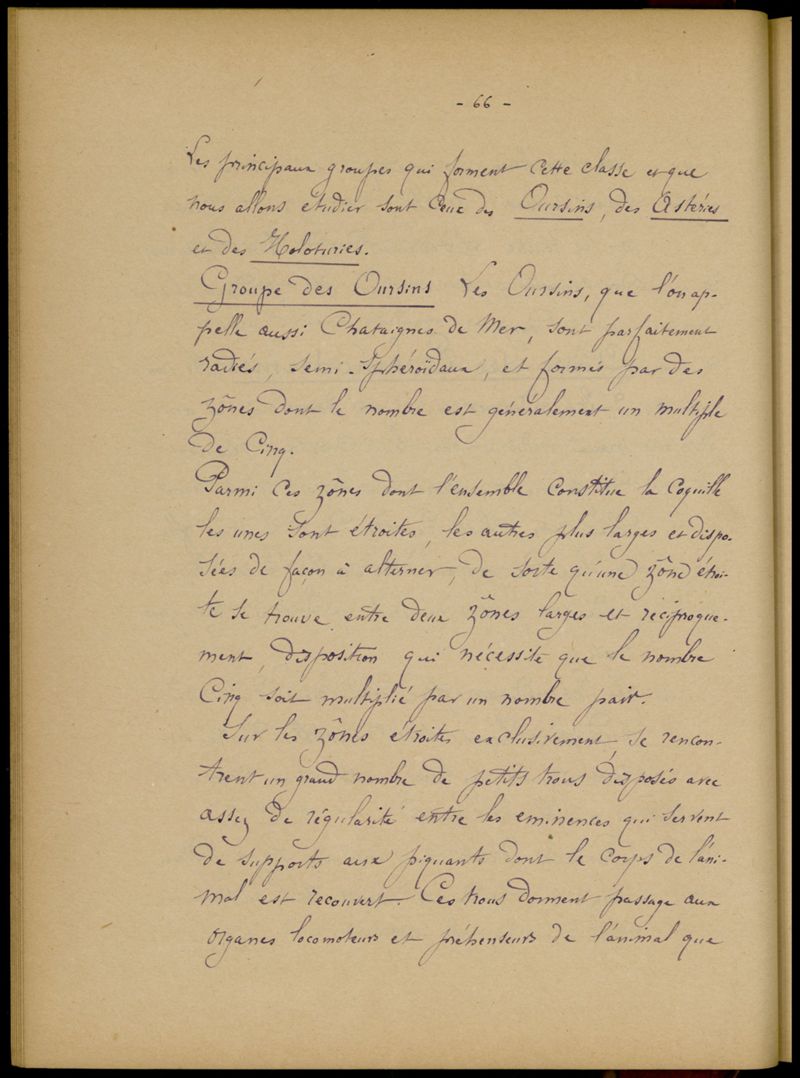 - 66 -
Les principaux groupes qui forment cette classe et que
nous allons étudier sont ceux des Oursins, des Astéries
et des Holoturies.
Groupe des Oursins Les Oursins, que l'on ap-
pelle aussi Chataignes de Mer, sont parfaitement
radiés, semi-sphéroïdaux, et formés par des
zônes dont le nombre est généralement un multiple
de Cinq.
Parmi ces zônes dont l'ensemble constitue la coquille
les unes sont étroites, les autres plus larges et dispo-
sées de façon à alterner, de sorte qu'une zône étroi-
te se trouve entre deux zônes larges et réciproque-
ment, disposition qui nécessite que le nombre
Cinq soit multiplié par un nombre pair.
Sur les zônes étroites exclusivement, se rencon-
trent un grand nombre de petits trous disposés avec
assez de régularité entre les eminences qui servent
de supports aux piquants dont le corps de l'ani-
mal est recouvert. Ces trous donnent passage aux
organes locomoteurs et préhenseurs de l'animal que